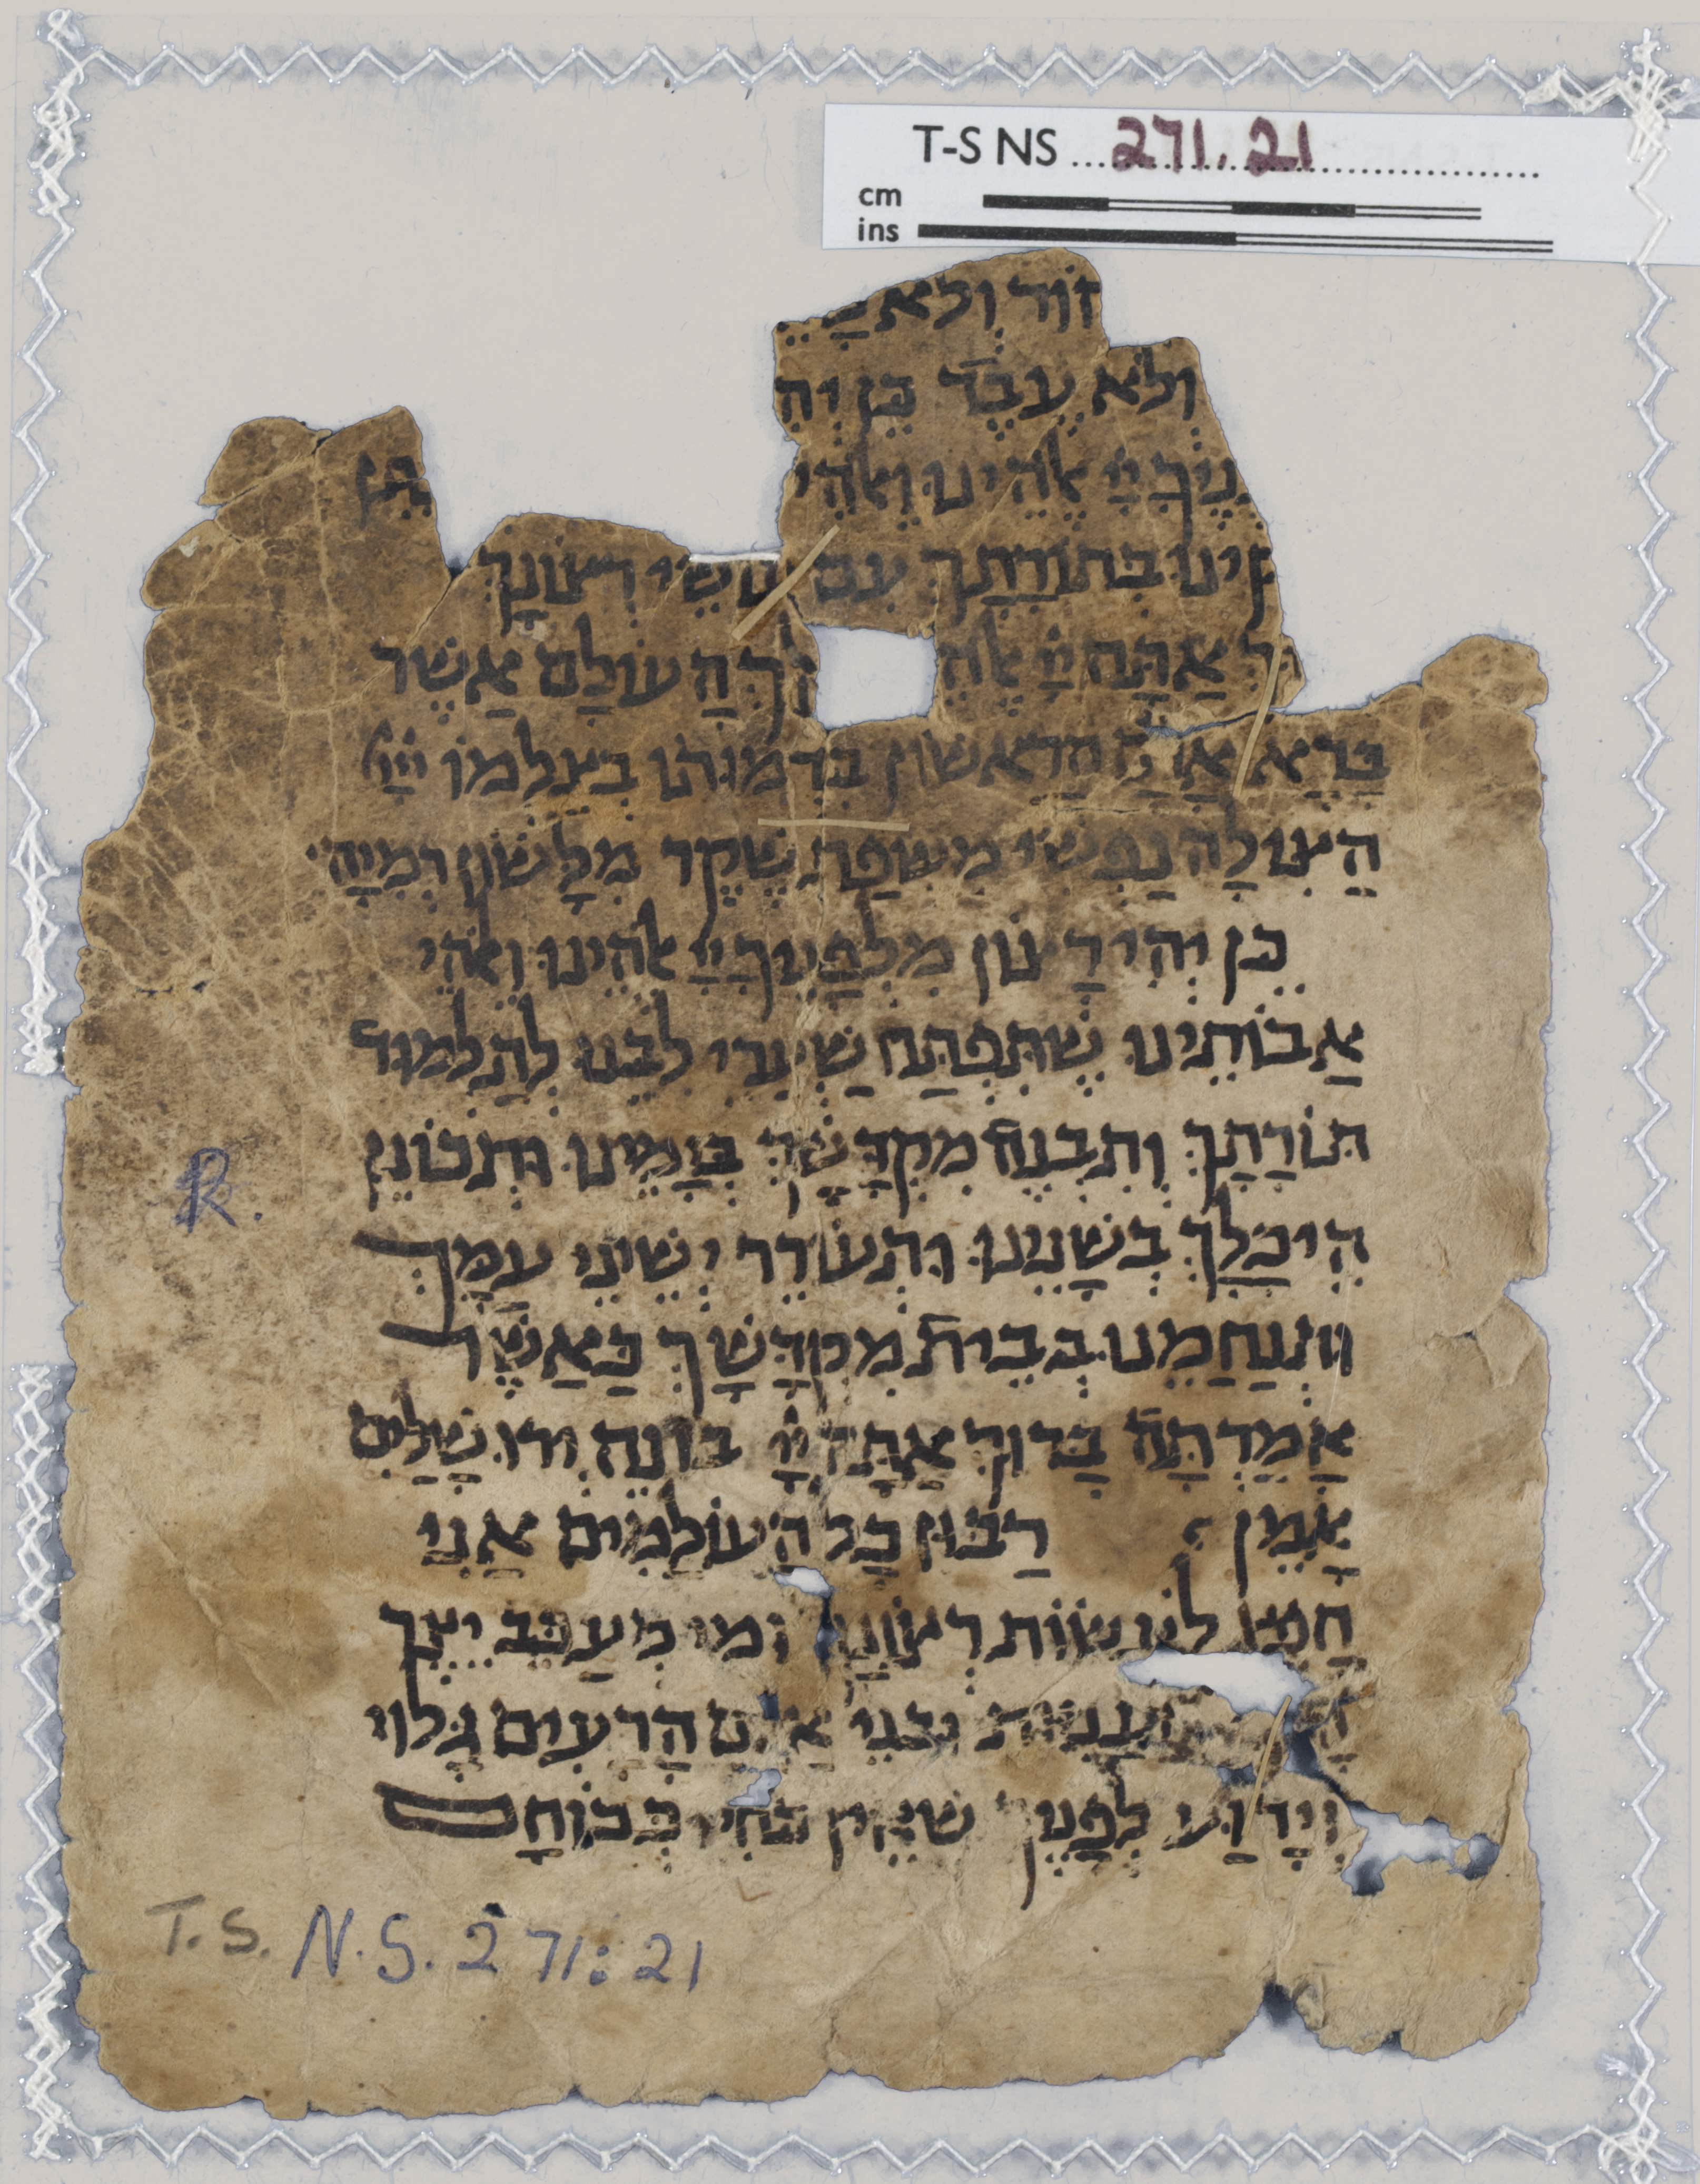 T-S NS 271.21
cm
ins
זוֹר וְלֹא
וְלֹא עֶבֶד כֵּן יְהִ
יְיָ אֱלֹהֵינוּ וֵאלֹהֵי
בְּתוֹרָתָךְ עִם עוֹשֵׂי רְצוֹנָךְ
אַתָּה יְיָ הָעוֹלָם אֲשֶׁר
בָּרָא הָרִאשׁוֹן בִּדְמוּתוֹ בְּצֶלְמוֹ יְיָ
הַצִּילָה נַפְשִׁי מִשְּׂפַת שֶׁקֶר מִלָּשׁוֹן רְמִיָּה
כֵּן יְהִי רָצוֹן מִלְּפָנֶיךָ יְיָ אלֹהֵינוּ וֵאלֹהֵי
אֲבוֹתֵינוּ שֶׁתִּפְתַּח שַׁעֲרֵי לִבֵּנוּ לְתַלְמוּד
תּוֹרָתָךְ וְתִבְנֶה מִקְדָּשָׁךְ בְּיָמֵינוּ וּתְכוֹנֵין
הֵיכָלָךְ בְּשָׁנֵינוּ וּתְעוֹרֵר יְשֵׁינֵי עַמָּךְ
וּתְנַחֲמֵנוּ בְּבֵית מִקְדָּשָׁךְ כַּאֲשֶׁר
אָמַרְתָּה בָּרוּךְ אַתָּה יְיָ בּוֹנֵה יְרוּשָׁלַיִם
אָמֵן רִבּוֹן כָּל הָעוֹלָמִים אֲנִי
חָפֵץ לַעֲשׂוֹת רְצוֹנָךְ וּמִי מְעַכֵּב יֵצֶר
הָרָע וַעֲנָוֹת וּבְנֵי אָדָם הָרָעִים גָּלוּי
וְיָדוּעַ לְפָנֶיךָ שֶׁאֵין כֹּחִי כְּכוֹחָם
R.
T.S. N.S. 271:21